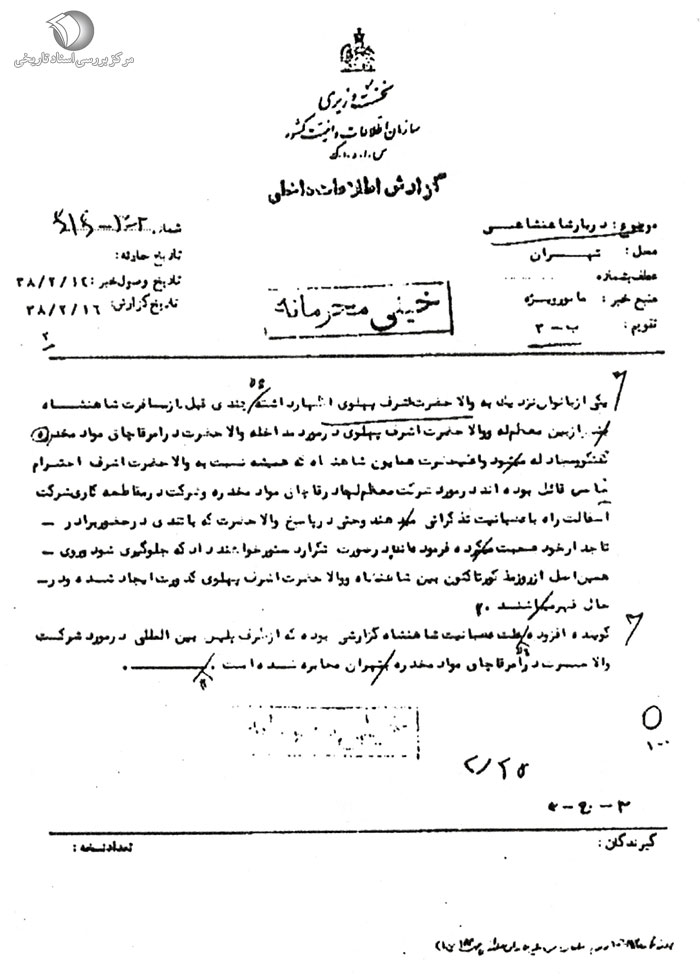 مرکز بررسی اسناد تاریخی
نخست وزیری
سازمان اطلاعات و امنیت کشور
س.ا.و.ا.ک
گزارش اطلاعات داخلی
موضوع : دربار شاهنشاهی
شماره
محل : تهران
تاریخ حادثه :
عطف بشماره
تاریخ وصول خبر : ۳۸/۲/۱۲
منبع خبر : مامور ویژه
تاریخ گزارش : ۳۸/۲/۱۶
تقویم : ب - ۳
خیلی محرمانه
یکی از بانوان نزدیک به والاحضرت اشرف پهلوی اظهار داشته چندی قبل از مسافرت شاهنشاه
بین معظم له و والاحضرت اشرف پهلوی در مورد مداخله والاحضرت در امر قاچاق مواد مخدره
گفتگو مبادله میشود و اعلیحضرت همایون شاهنشاه که همیشه نسبت به والاحضرت اشرف احترام
خاصی قائل بوده اند در مورد شرکت معظم لها در قاچاق مواد مخدره و شرکت در مقاطعه کاری شرکت
اسفالت راه با عصبانیت تذکراتی میدهند و حتی در پاسخ والاحضرت که با تندی در حضور برادر -
تاجدار خود صحبت میکرده فرموده اند در صورت تکرار دستور خواهند داد که جلوگیری شود و روی -
همین اصل از روز مذکور تا کنون بین شاهنشاه و والاحضرت اشرف پهلوی کدورت ایجاد شده و در -
حال قهر میباشند .
گوینده افزوده علت عصبانیت شاهنشاه گزارشی بوده که از طرف پلیس بین المللی در مورد شرکت
والاحضرت در امر قاچاق مواد مخدره بتهران مخابره شده است .
۱۰۰
۲/۲۵
گیرندگان :
تعداد نسخه :